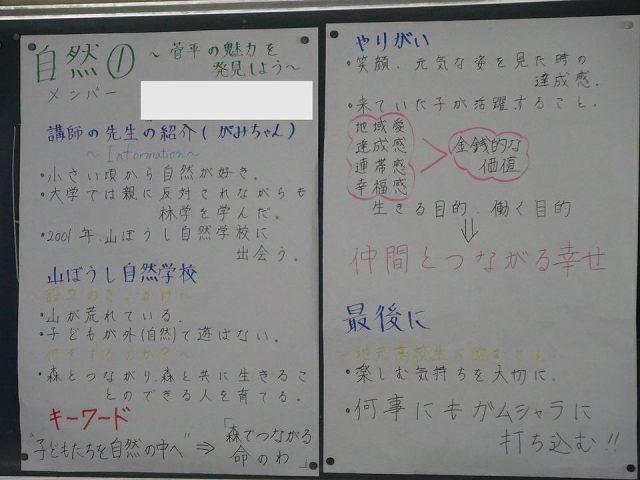 自然① ～菅平の魅力を
発見しよう～
メンバー
講師の先生の紹介(がみちゃん)
～Information～
・小さい頃から自然が好き。
・大学では親に反対されながらも
林学を学んだ。
・2001年、山ぼうし自然学校に
出会う。
山ぼうし自然学校
～設立のきっかけ～
・山が荒れている。
・子どもが外(自然)で遊ばない。
～何をするのか?～
・森とつながり、森と共に生きるこ
とのできる人を育てる。
キーワード
"子どもたちを自然の中へ" ⇒ 「森でつながる
命のわ」
やりがい
・笑顔、元気な姿を見た時の
達成感。
・来ていた子が活躍すること。
地域愛
達成感
連帯感
幸福感
> 金銭的な
価値
生きる目的、働く目的
⇓
仲間とつながる幸せ
最後に
～地元高校生に
・楽しむ気持ちを大切に。
・何事にもガムシャラに
打ち込む!!